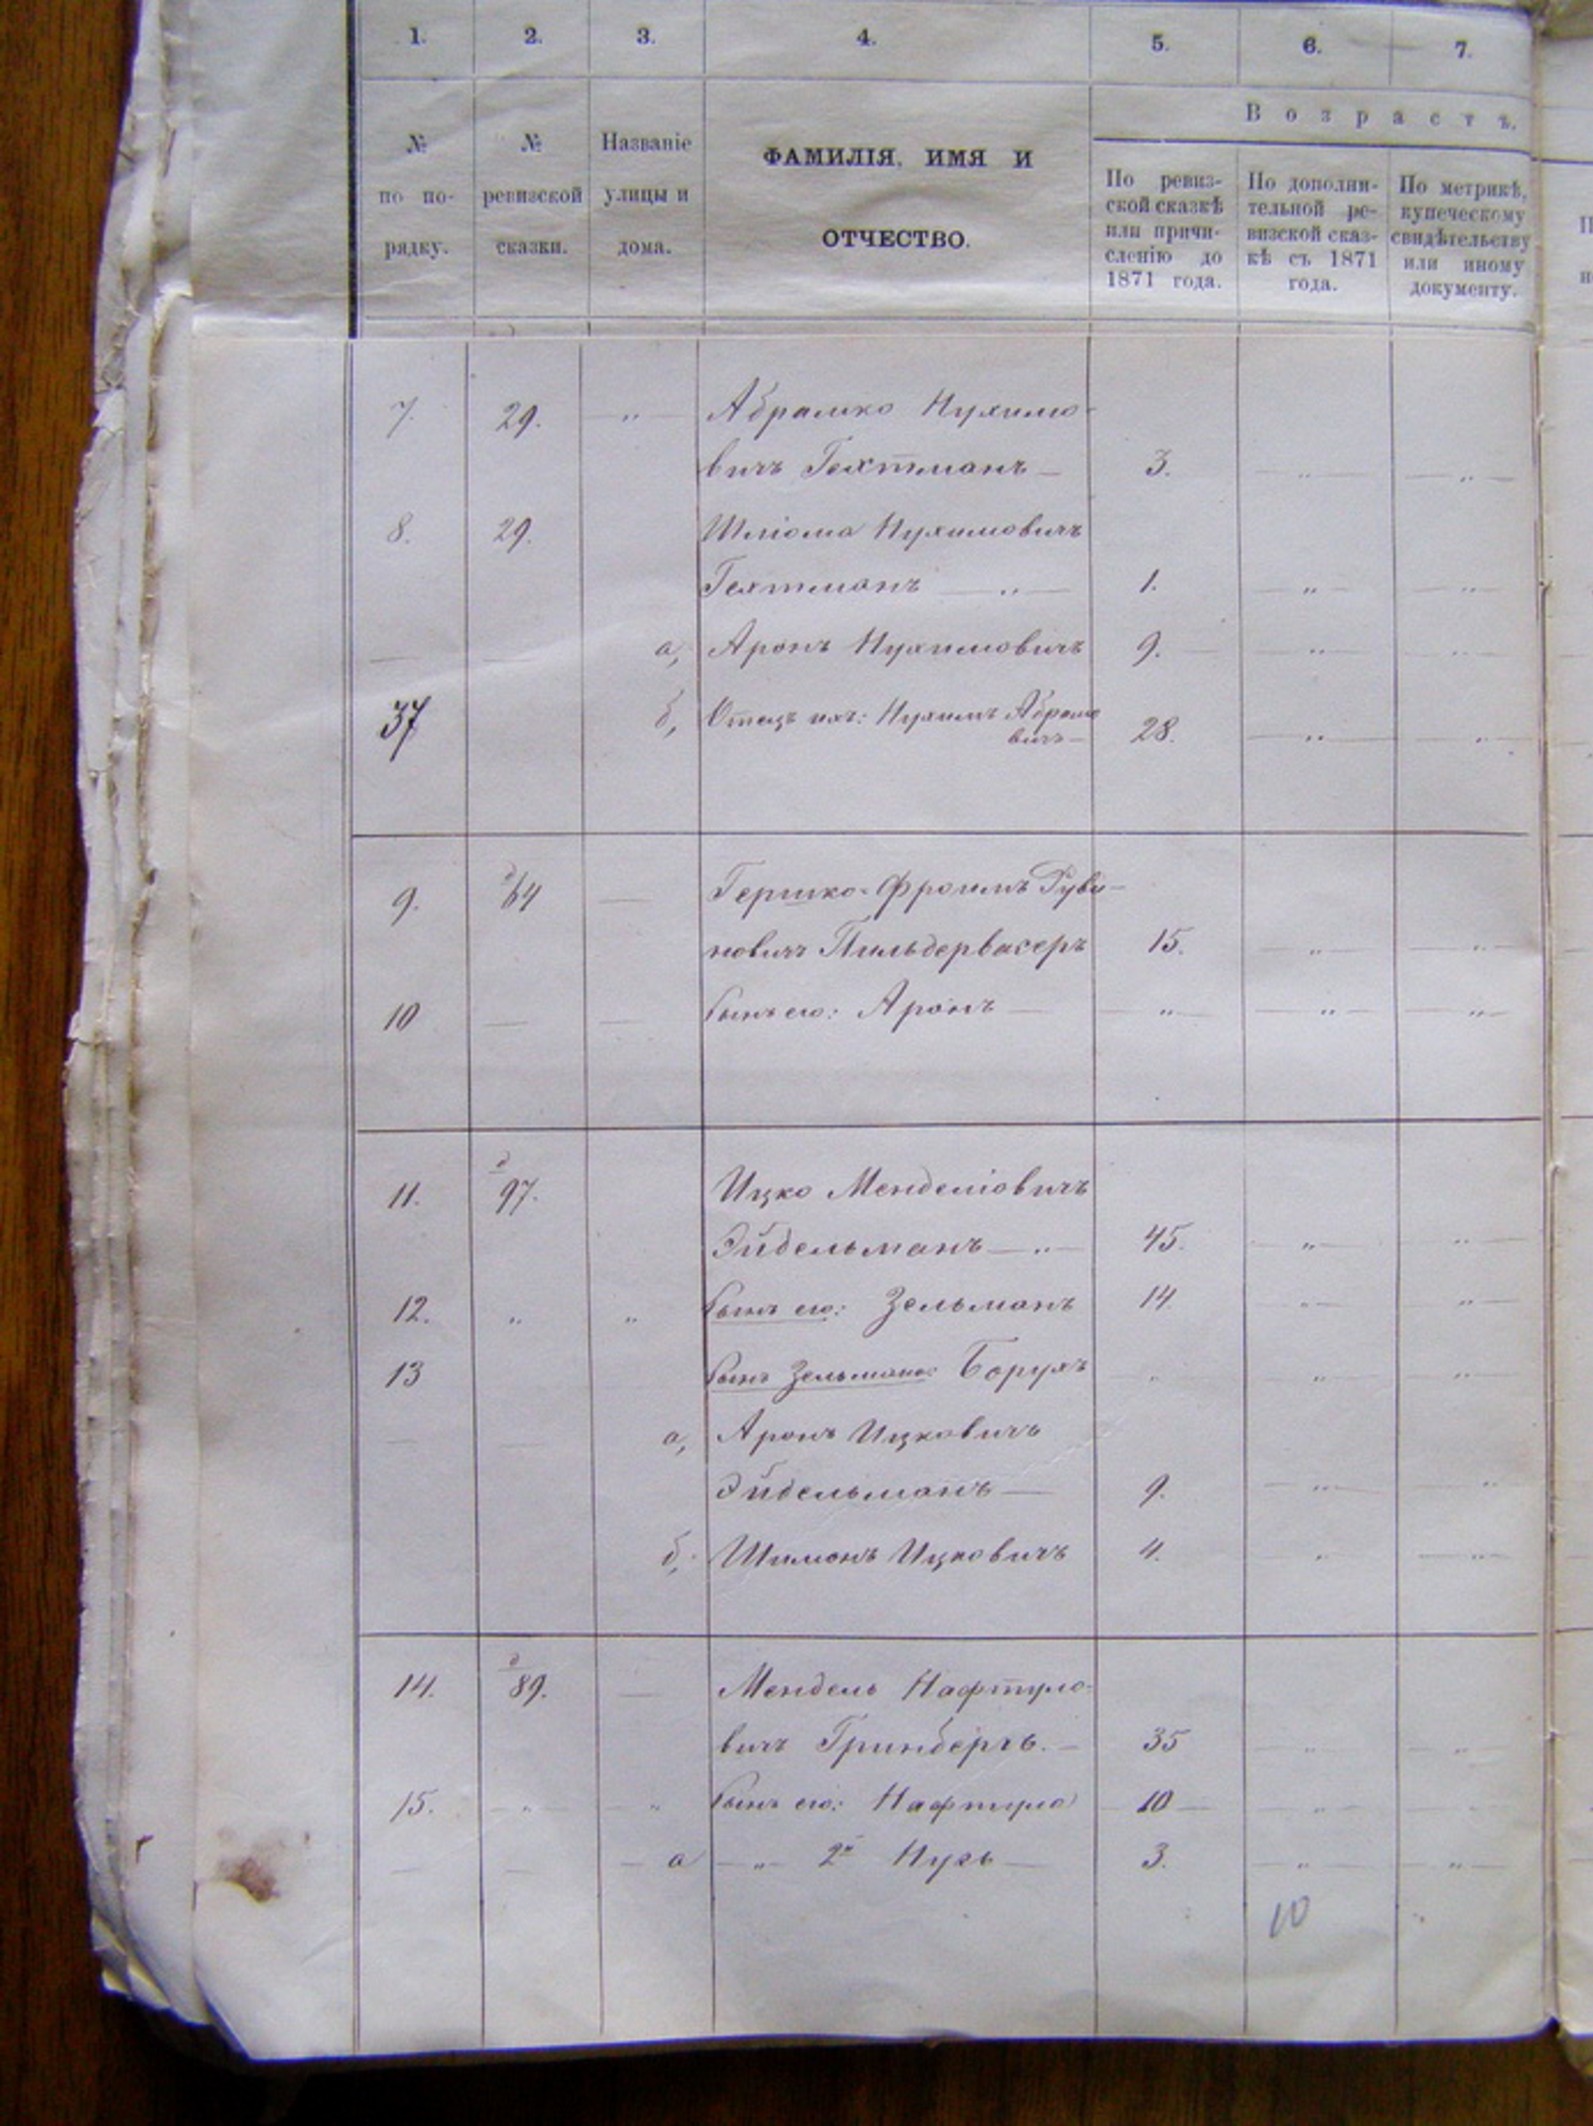 1. 2. 3. 4. 5. 6. 7.
№ по порядку.
№ ревизской сказки.
Названіе улицы и дома.
ФАМИЛІЯ, ИМЯ И
ОТЧЕСТВО.
Возрастъ.
По ревиз-
ской сказкѣ
или причи-
сленію до
1871 года.
По дополни-
тельной ре-
визской сказ-
кѣ съ 1871
года.
По метрикѣ,
купеческому
свидѣтельству
или иному
документу.
7. 29. „ Абрамко Нухимо-
вичъ Гехтманъ — 3. „ „
8. 29. Шліома Нухимовичъ
Гехтманъ — „ — 1. „ „
а, Аронъ Нухимовичъ 9. „ „
37 б, Отецъ ихъ: Нухимъ Абрамо
вичъ — 28. „ „
9. д/64 — Гершко-Фроимъ Руви-
новичъ Пильдервасеръ 15. „ „
10 — — Сынъ его: Аронъ — „ „ „
11. д/97. Ицко Менделіовичъ
Эйдельманъ — „ — 45. „ „
12. „ „ Сынъ его: Зельманъ 14 „ „
13 Сынъ Зельмана: Борухъ „ „ „
а, Аронъ Ицковичъ
Эйдельманъ — 9. „ „
б, Шимонъ Ицковичъ 4. „ „
14. д/89. — Мендель Нафтуло-
вичъ Гринбергъ. — 35 „ „
15. „ „ Сынъ его: Нафтула 10 — „ „
— — — а — „ — 2й Нусь — 3. „ „
10